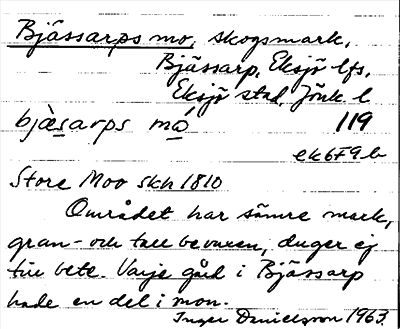 Bjässarps mo, skogsmark,
Bjässarp, Eksjö lfs,
Eksjö stad, Jönk l
bjæsarps mó 119
ek 6F9 b
Store Moo skh 1810
Området har sämre mark,
gran- och tallbevuxen, duger ej
till bete. Varje gård i Bjässarp
hade en del i mon.
Inger Danielsson 1963